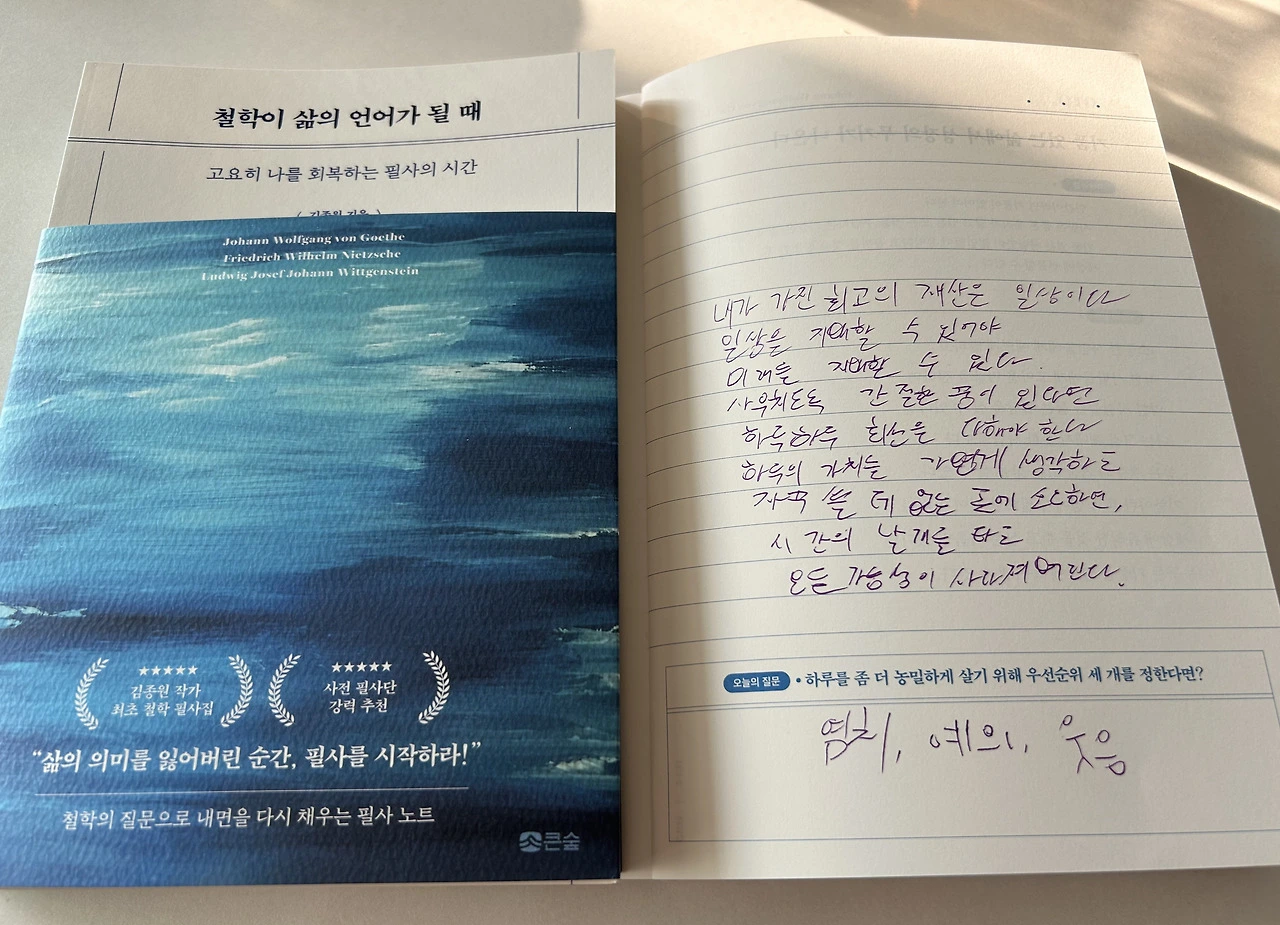 철학이 삶의 언어가 될 때
고요히 나를 회복하는 필사의 시간
Johann Wolfgang von Goethe
Friedrich Wilhelm Nietzsche
Ludwig Josef Johann Wittgenstein
★★★★★
김종원 작가
최초 철학 필사집
★★★★★
사전 필사단
강력 추천
“삶의 의미를 잃어버린 순간, 필사를 시작하라!”
철학의 질문으로 내면을 다시 채우는 필사 노트
큰숲
내가 가진 최고의 재산은 일상이다
일상을 지배할 수 있어야
미래를 지배할 수 있다.
사무치도록 간절한 꿈이 있다면
하루하루 최선을 다해야 한다
하루의 가치를 가볍게 생각하고
자꾸 쓸 데 없는 곳에 소모하면,
시간의 날개를 타고
모든 가능성이 사라져버린다.
오늘의 질문 • 하루를 좀 더 농밀하게 살기 위해 우선순위 세 개를 정한다면?
염치, 예의, 웃음